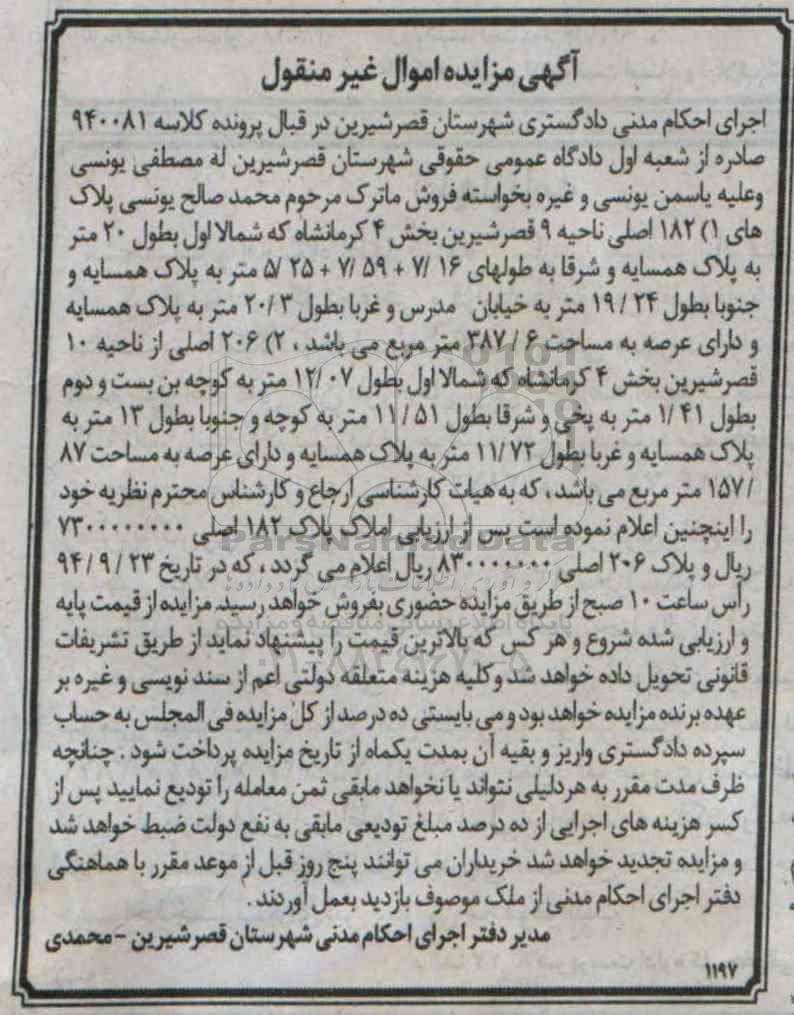 آگهی مزایده اموال غیر منقول
اجرای احکام مدنی دادگستری شهرستان قصرشیرین در قبال پرونده کلاسه ۹۴۰۰۸۱
صادره از شعبه اول دادگاه عمومی حقوقی شهرستان قصرشیرین له مصطفی یونسی
وعلیه یاسمن یونسی و غیره بخواسته فروش ماترک مرحوم محمد صالح یونسی پلاک
های ۱) ۱۸۲ اصلی ناحیه ۹ قصرشیرین بخش ۴ کرمانشاه که شمالا اول بطول ۲۰ متر
به پلاک همسایه و شرقا به طولهای ۱۶ /۷ + ۵۹ /۷ + ۲۵ /۵ متر به پلاک همسایه و
جنوبا بطول ۲۴ / ۱۹ متر به خیابان مدرس و غربا بطول ۳ /۲۰ متر به پلاک همسایه
و دارای عرصه به مساحت ۶ / ۳۸۷ متر مربع می باشد ، ۲) ۲۰۶ اصلی از ناحیه ۱۰
قصرشیرین بخش ۴ کرمانشاه که شمالا اول بطول ۰۷ /۱۲ متر به کوچه بن بست و دوم
بطول ۴۱ /۱ متر به پخی و شرقا بطول ۵۱ / ۱۱ متر به کوچه و جنوبا بطول ۱۳ متر به
پلاک همسایه و غربا بطول ۷۲ /۱۱ متر به پلاک همسایه و دارای عرصه به مساحت ۸۷
/ ۱۵۷ متر مربع می باشد ، که به هیات کارشناسی ارجاع و کارشناس محترم نظریه خود
را اینچنین اعلام نموده است پس از ارزیابی املاک پلاک ۱۸۲ اصلی ۷۳۰۰۰۰۰۰۰۰
ریال و پلاک ۲۰۶ اصلی ۸۳۰۰۰۰۰۰۰ ریال اعلام می گردد ، که در تاریخ ۲۳ / ۹ / ۹۴
رأس ساعت ۱۰ صبح از طریق مزایده حضوری بفروش خواهد رسید. مزایده از قیمت پایه
و ارزیابی شده شروع و هر کس که بالاترین قیمت را پیشنهاد نماید از طریق تشریفات
قانونی تحویل داده خواهد شد و کلیه هزینه متعلقه دولتی اعم از سند نویسی و غیره بر
عهده برنده مزایده خواهد بود و می بایستی ده درصد از کل مزایده فی المجلس به حساب
سپرده دادگستری واریز و بقیه آن بمدت یکماه از تاریخ مزایده پرداخت شود . چنانچه
ظرف مدت مقرر به هر دلیلی نتواند یا نخواهد مابقی ثمن معامله را تودیع نمایید پس از
کسر هزینه های اجرایی از ده درصد مبلغ تودیعی مابقی به نفع دولت ضبط خواهد شد
و مزایده تجدید خواهد شد خریداران می توانند پنج روز قبل از موعد مقرر با هماهنگی
دفتر اجرای احکام مدنی از ملک موصوف بازدید بعمل آوردند .
مدیر دفتر اجرای احکام مدنی شهرستان قصرشیرین - محمدی
۱۱۹۷
ParsNamadData